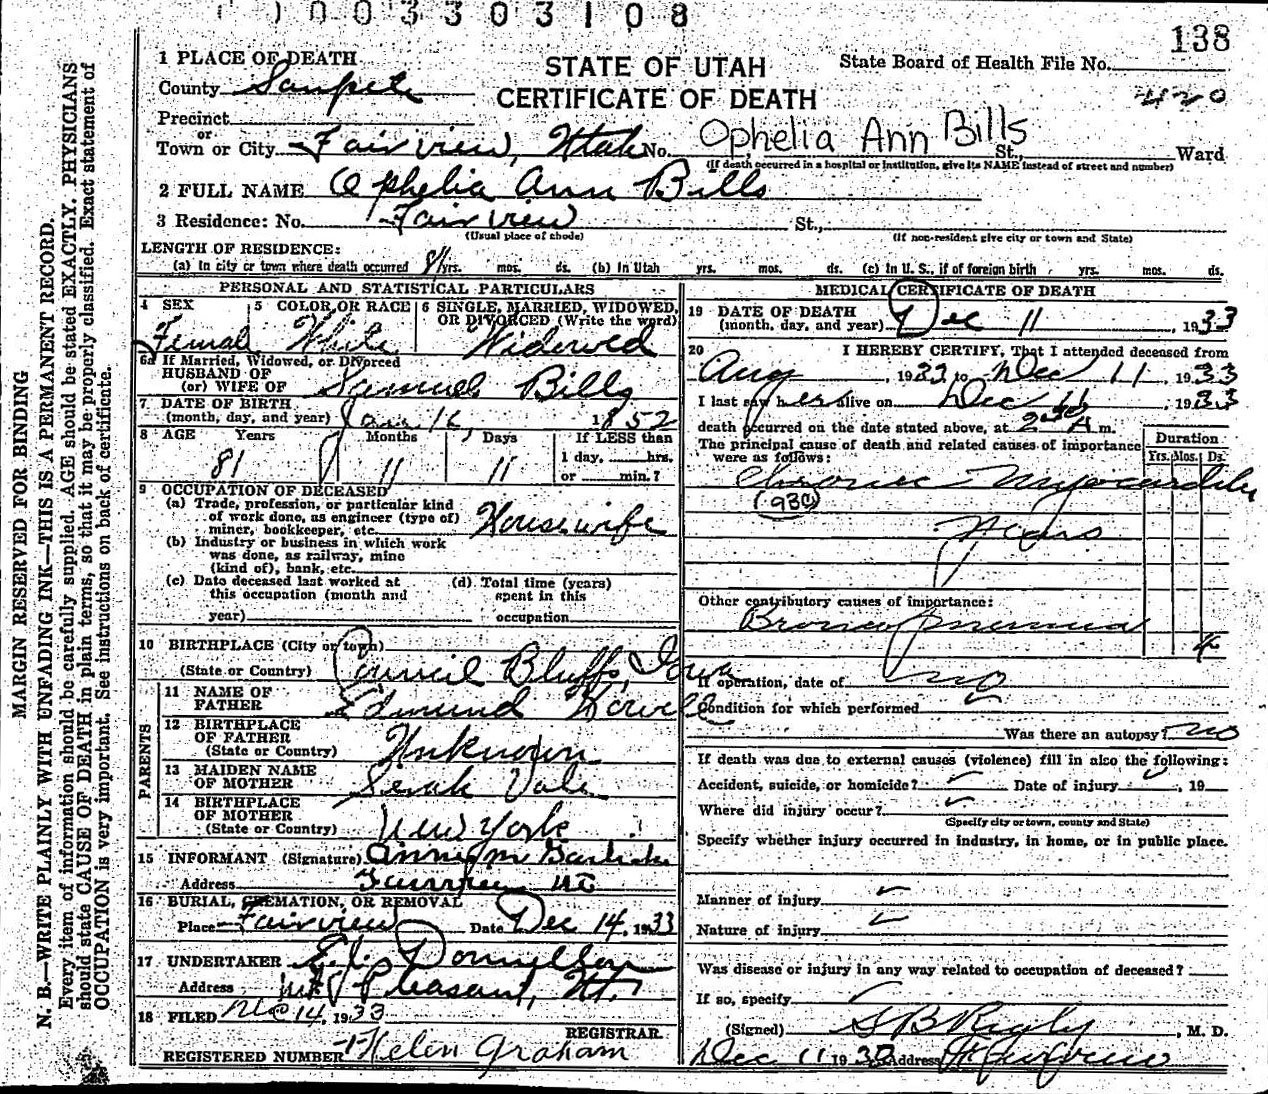 0 0 3 3 0 3 1 0 8
138
1 PLACE OF DEATH
STATE OF UTAH
State Board of Health File No.
County Sanpete
CERTIFICATE OF DEATH
420
Precinct
or
Town or City Fairview, Utah No. Ophelia Ann Bills St., Ward
(If death occurred in a hospital or institution, give its NAME instead of street and number)
2 FULL NAME Ophelia Ann Bills
3 Residence: No. Fairview St.,
(Usual place of abode) (If non-resident give city or town and State)
LENGTH OF RESIDENCE:
(a) In city or town where death occurred 81 yrs. mos. ds. (b) In Utah yrs. mos. ds. (c) In U. S., if of foreign birth yrs. mos. ds.
PERSONAL AND STATISTICAL PARTICULARS
4 SEX 5 COLOR OR RACE 6 SINGLE, MARRIED, WIDOWED, OR DIVORCED (Write the word)
Female White Widowed
6a If Married, Widowed, or Divorced
HUSBAND OF
(or) WIFE OF Samuel Bills
7 DATE OF BIRTH
(month, day, and year) Jan 16, 1852
8 AGE Years Months Days If LESS than
81 11 11 1 day, hrs.
or min.?
9 OCCUPATION OF DECEASED
(a) Trade, profession, or particular kind
of work done, as engineer (type of)
miner, bookkeeper, etc. Housewife
(b) Industry or business in which work
was done, as railway, mine
(kind of), bank, etc.
(c) Date deceased last worked at (d) Total time (years)
this occupation (month and spent in this
year) occupation
10 BIRTHPLACE (City or town)
(State or Country) Council Bluffs, Iowa
PARENTS
11 NAME OF
FATHER Edmund Howell
12 BIRTHPLACE
OF FATHER
(State or Country) Unknown
13 MAIDEN NAME
OF MOTHER Serah Vale
14 BIRTHPLACE
OF MOTHER
(State or Country) New York
15 INFORMANT (Signature) Annie M
Address Fairview Ut
16 BURIAL, CREMATION, OR REMOVAL
Place Fairview Date Dec 14, 1933
17 UNDERTAKER Donnellson
Address Mt Pleasant, Ut.
18 FILED Dec 14, 1933
REGISTRAR.
REGISTERED NUMBER Helen Graham
MEDICAL CERTIFICATE OF DEATH
19 DATE OF DEATH
(month, day, and year) Dec 11, 1933
20 I HEREBY CERTIFY, That I attended deceased from
Aug, 1933 to Dec 11, 1933
I last saw her alive on Dec 11, 1933
death occurred on the date stated above, at A m.
The principal cause of death and related causes of importance
were as follows:
Duration
Yrs. Mos. Ds.
Chronic Myocarditis
(93c)
Years
Other contributory causes of importance:
Bronco pneumonia 4
If operation, date of no
Condition for which performed
Was there an autopsy? no
If death was due to external causes (violence) fill in also the following:
Accident, suicide, or homicide? Date of injury , 19
Where did injury occur?
(Specify city or town, county and State)
Specify whether injury occurred in industry, in home, or in public place.
Manner of injury
Nature of injury
Was disease or injury in any way related to occupation of deceased?
If so, specify
(Signed) Rigby, M. D.
Dec 11 1933 Address Fairview
MARGIN RESERVED FOR BINDING
N. B.—WRITE PLAINLY WITH UNFADING INK—THIS IS A PERMANENT RECORD.
Every item of information should be carefully supplied. AGE should be stated EXACTLY. PHYSICIANS
should state CAUSE OF DEATH in plain terms, so that it may be properly classified. Exact statement of
OCCUPATION is very important. See instructions on back of certificate.